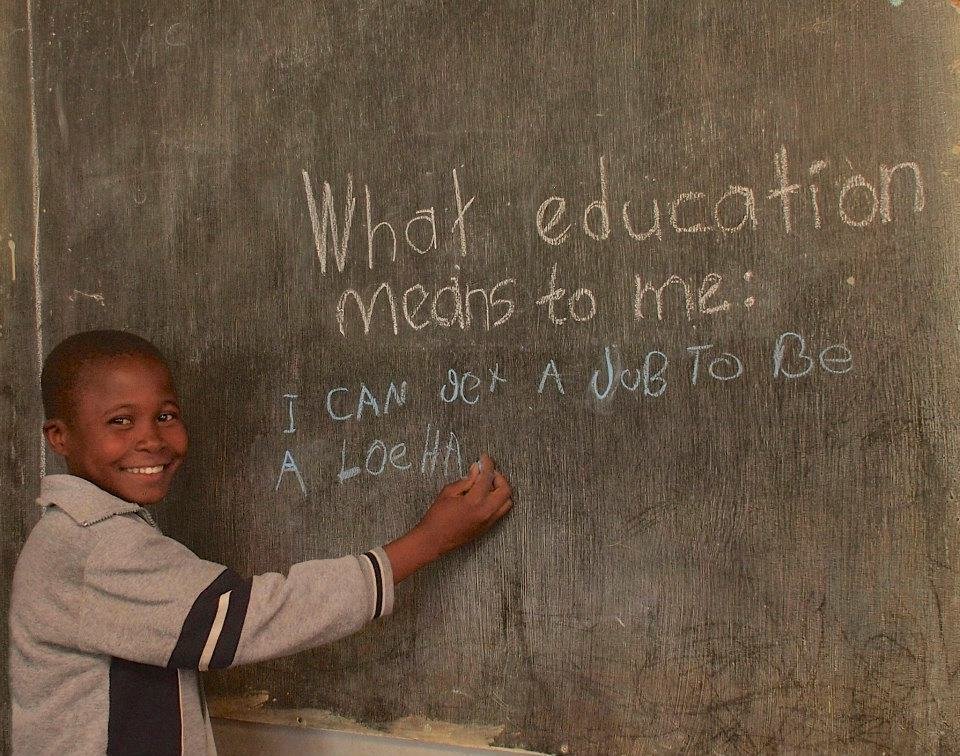 What education
means to me:
I CAN get A JOB TO Be
A LOeHA